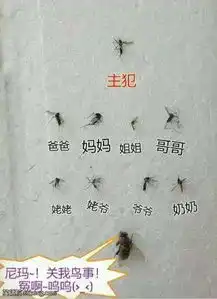 主犯
爸爸 妈妈 姐姐 哥哥
姥姥 姥爷 爷爷 奶奶
尼玛~! 关我鸟事!
冤啊~呜呜(> <)